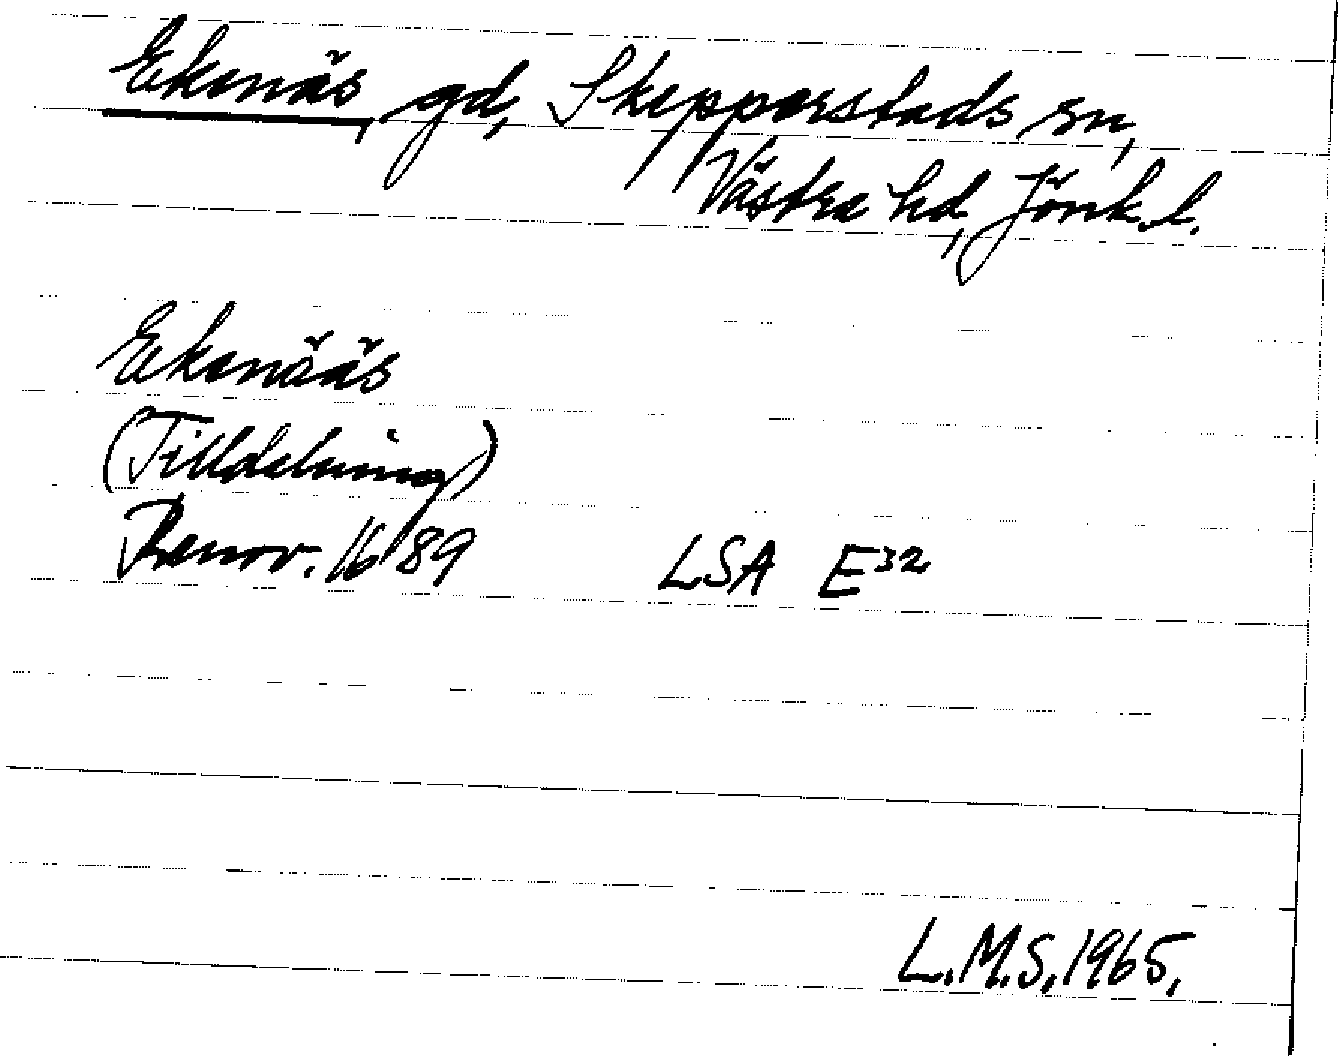 Ekenäs, gd, Skepperstads sn,
Västra hd, Jönk.l.
Ekenääs
(Tilldelning)
Renov. 1689 LSA E³²
L.M.S. 1965.